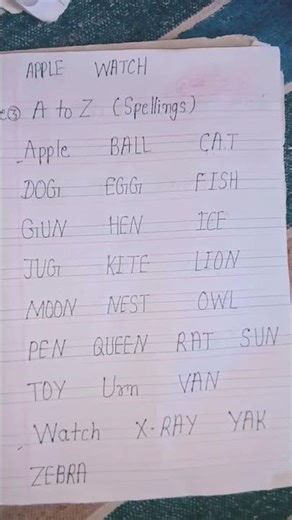 APPLE WATCH
③ A to Z (Spellings)
Apple BALL CAT
DOG EGG FISH
GUN HEN ICE
JUG KITE LION
MOON NEST OWL
PEN QUEEN RAT SUN
TOY Urn VAN
Watch X-RAY YAK
ZEBRA